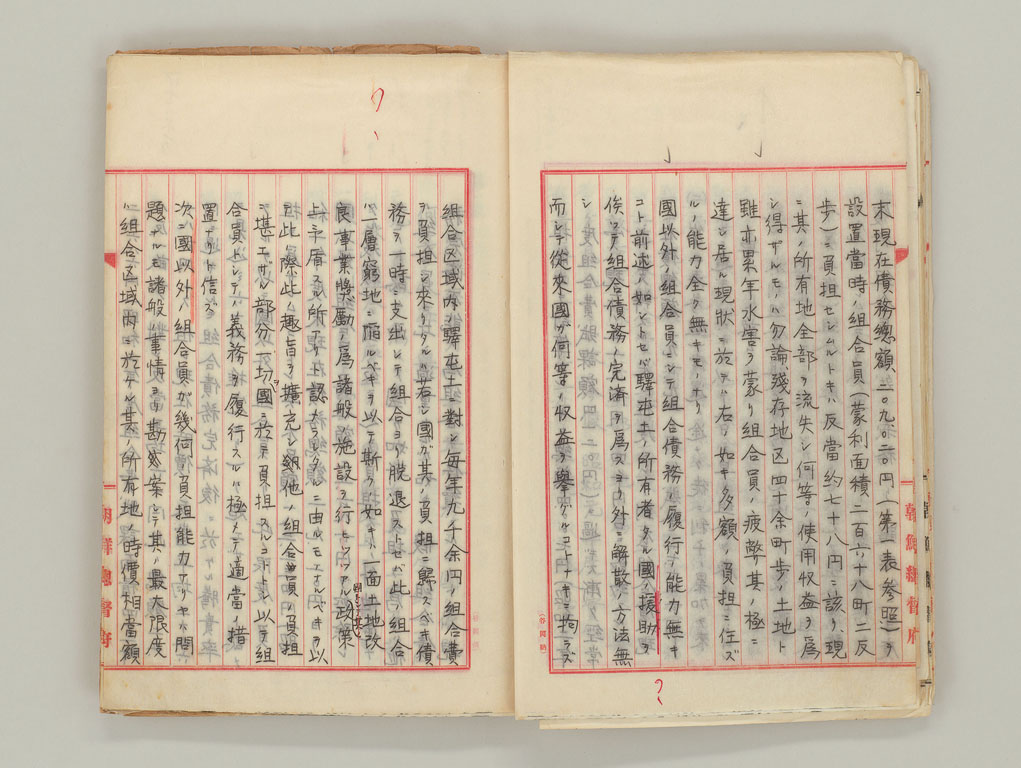 末現在債務總額二〇九、〇二〇円(第一表参照)ヲ
設置當時ノ組合員(蒙利面積二百六十八町二反
歩)ニ負担セシムルトキハ反當約七十八円ニ該リ、現
ニ其ノ所有地全部ヲ流失シ何等ノ使用収益ヲ為
シ得ザルモノハ勿論、残存地区四十余町歩ノ土地ト
雖亦累年水害ヲ蒙リ組合員ノ疲弊其ノ極ニ
達シ居ル現状ニ於テハ右ノ如キ多額ノ負担ニ任ズ
ルノ能力全ク無キモノナリ
國以外ノ組合員ニシテ組合債務ノ履行ノ能力無キ
コト前述ノ如シトセバ驛屯土ノ所有者タル國ノ援助ヲ
俟ツテ組合債務ノ完済ヲ為スヨリ外ニ解散ノ方法無
シ
而シテ從來國ガ何等ノ収益ヲ擧グルコトナキニ拘ラズ
組合区域内ノ驛屯土ニ對シ毎年九千余円ノ組合費
ヲ負担シ来リタルハ若シ國ガ其ノ負担ニ歸スベキ債
務ヲ一時ニ支出シテ組合ヨリ脱退ストセバ此ノ組合
ハ一層窮地ニ陥ルベキヲ以テ斯クノ如キハ一面土地改
良事業奬勵ノ為諸般ノ施設ヲ行ヒツツアル政策
上ノ
此ノ際此ノ趣旨ヲ擴充シ他ノ組合員ノ負担
ニ堪エザル部分一切國ニ於テ負担スルコトトシ以テ組
合員トシテノ義務ヲ履行スルハ極メテ適當ノ措
置ナリト信ズ
次ニ國以外ノ組合員ガ幾何ノ負担能力アリヤハ問
題ナルモ諸般ノ事情ヨリ勘案シテ其ノ最大限度
ハ組合区域内ニ於ケル其ノ所有地ノ時價相當額
朝鮮總督府
朝鮮總督府